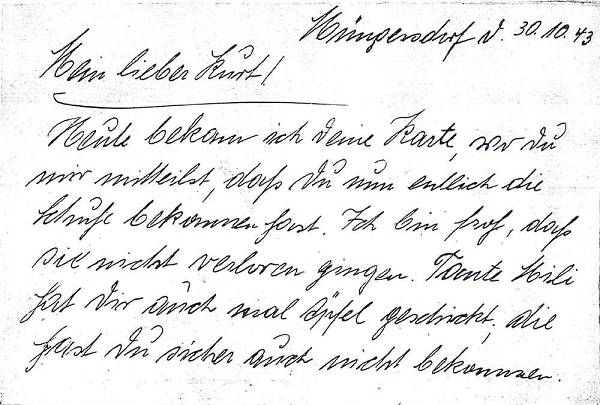 Müngersdorf d. 30.10.43
Mein lieber Kurt!
Heute bekam ich Deine Karte, wo Du
mir mitteilst, daß Du nun entlich die
Schuhe bekommen hast. Ich bin froh, daß
sie nicht verloren gingen. Tante Mili
hat Dir auch mal Äpfel geschickt, die
hast Du sicher auch nicht bekommen.